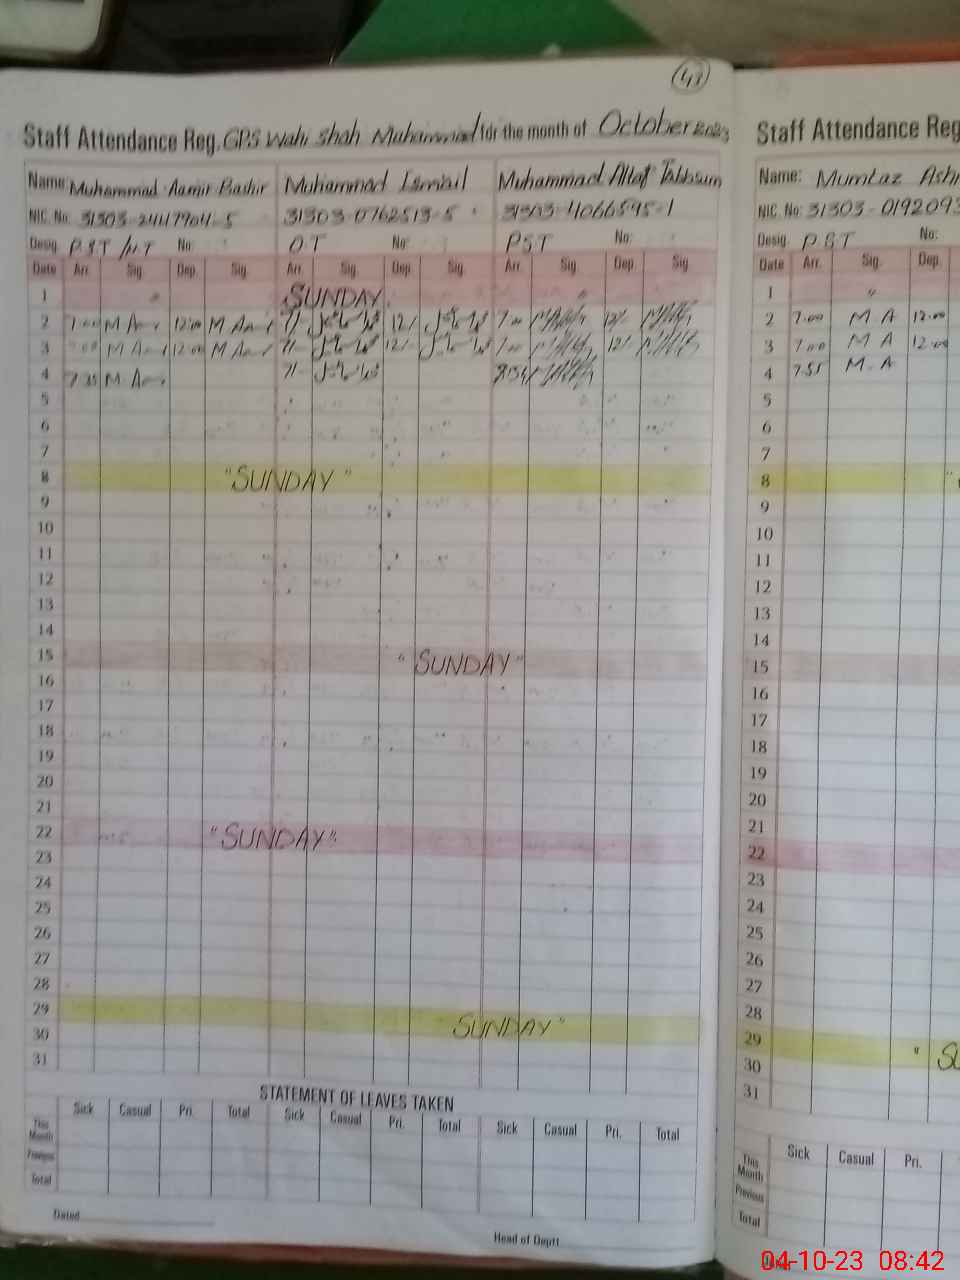 43
Staff Attendance Reg. GPS Wahi Shah Muhammad for the month of October 2023
Name: Muhammad Aamir Bashir Muhammad Ismail Muhammad Altaf Tabbsum
NIC. No. 31303-2447904-5 31303-0762513-5 31303-4066595-1
Desig. PST /HT No: OT No: PST No:
Date Arr. Sig. Dep. Sig. Arr. Sig. Dep. Sig. Arr. Sig. Dep. Sig.
1 " SUNDAY "
2 7:00 12:00 7/- 12/- 7:00 12/-
3 7:00 12:00 7/- 12/- 7:00 12/-
4 7:35 7/-
5
6
7
8 "SUNDAY"
9
10
11
12
13
14
15 "SUNDAY"
16
17
18
19
20
21
22 "SUNDAY"
23
24
25
26
27
28
29 SUNDAY"
30
31
STATEMENT OF LEAVES TAKEN
Sick Casual Pri. Total Sick Casual Pri. Total Sick Casual Pri. Total
This Month
Previous
Total
Dated
Head of Deptt
Staff Attendance Reg
Name: Mumtaz
NIC. No: 31303-0192093
Desig. PST No:
Date Arr. Sig. Dep.
1 "
2 7:00 M A 12:00
3 7:00 M A 12:00
4 7:55 M.A
5
6
7
8 "
9
10
11
12
13
14
15
16
17
18
19
20
21
22
23
24
25
26
27
28
29 " SU
30
31
Sick Casual Pri.
This Month
Previous
Total
04-10-23 08:42